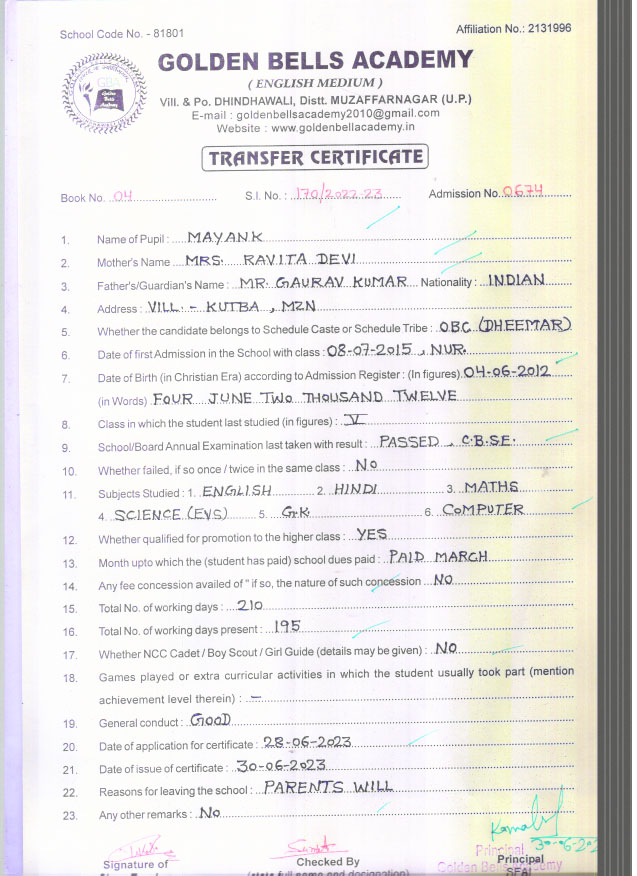 School Code No. - 81801
Affiliation No.: 2131996
GOLDEN BELLS ACADEMY
( ENGLISH MEDIUM )
Vill. & Po. DHINDHAWALI, Distt. MUZAFFARNAGAR (U.P.)
E-mail : goldenbellsacademy2010@gmail.com
Website : www.goldenbellsacademy.in
TRANSFER CERTIFICATE
Book No. 04 S.I. No. : 170/2022-23 Admission No. 0674
1. Name of Pupil : MAYANK
2. Mother's Name MRS. RAVITA DEVI
3. Father's/Guardian's Name : MR. GAURAV KUMAR Nationality : INDIAN
4. Address : VILL. - KUTBA , MZN
5. Whether the candidate belongs to Schedule Caste or Schedule Tribe : OBC (DHEEMAR)
6. Date of first Admission in the School with class : 08-07-2015 , NUR.
7. Date of Birth (in Christian Era) according to Admission Register : (In figures) 04-06-2012
(in Words) FOUR JUNE TWO THOUSAND TWELVE
8. Class in which the student last studied (in figures) : V
9. School/Board Annual Examination last taken with result : PASSED , C.B.SE.
10. Whether failed, if so once / twice in the same class : NO
11. Subjects Studied : 1. ENGLISH 2. HINDI 3. MATHS
4. SCIENCE (EVS) 5. G.K. 6. COMPUTER
12. Whether qualified for promotion to the higher class : YES
13. Month upto which the (student has paid) school dues paid : PAID MARCH
14. Any fee concession availed of " if so, the nature of such concession NO
15. Total No. of working days : 210
16. Total No. of working days present : 195
17. Whether NCC Cadet / Boy Scout / Girl Guide (details may be given) : NO
18. Games played or extra curricular activities in which the student usually took part (mention
achievement level therein) : —
19. General conduct : GOOD
20. Date of application for certificate : 28-06-2023
21. Date of issue of certificate : 30-06-2023
22. Reasons for leaving the school : PARENTS WILL
23. Any other remarks : No
Signature of
Checked By
(state full name and designation)
Principal
Golden Bells Academy
Principal
SEAL